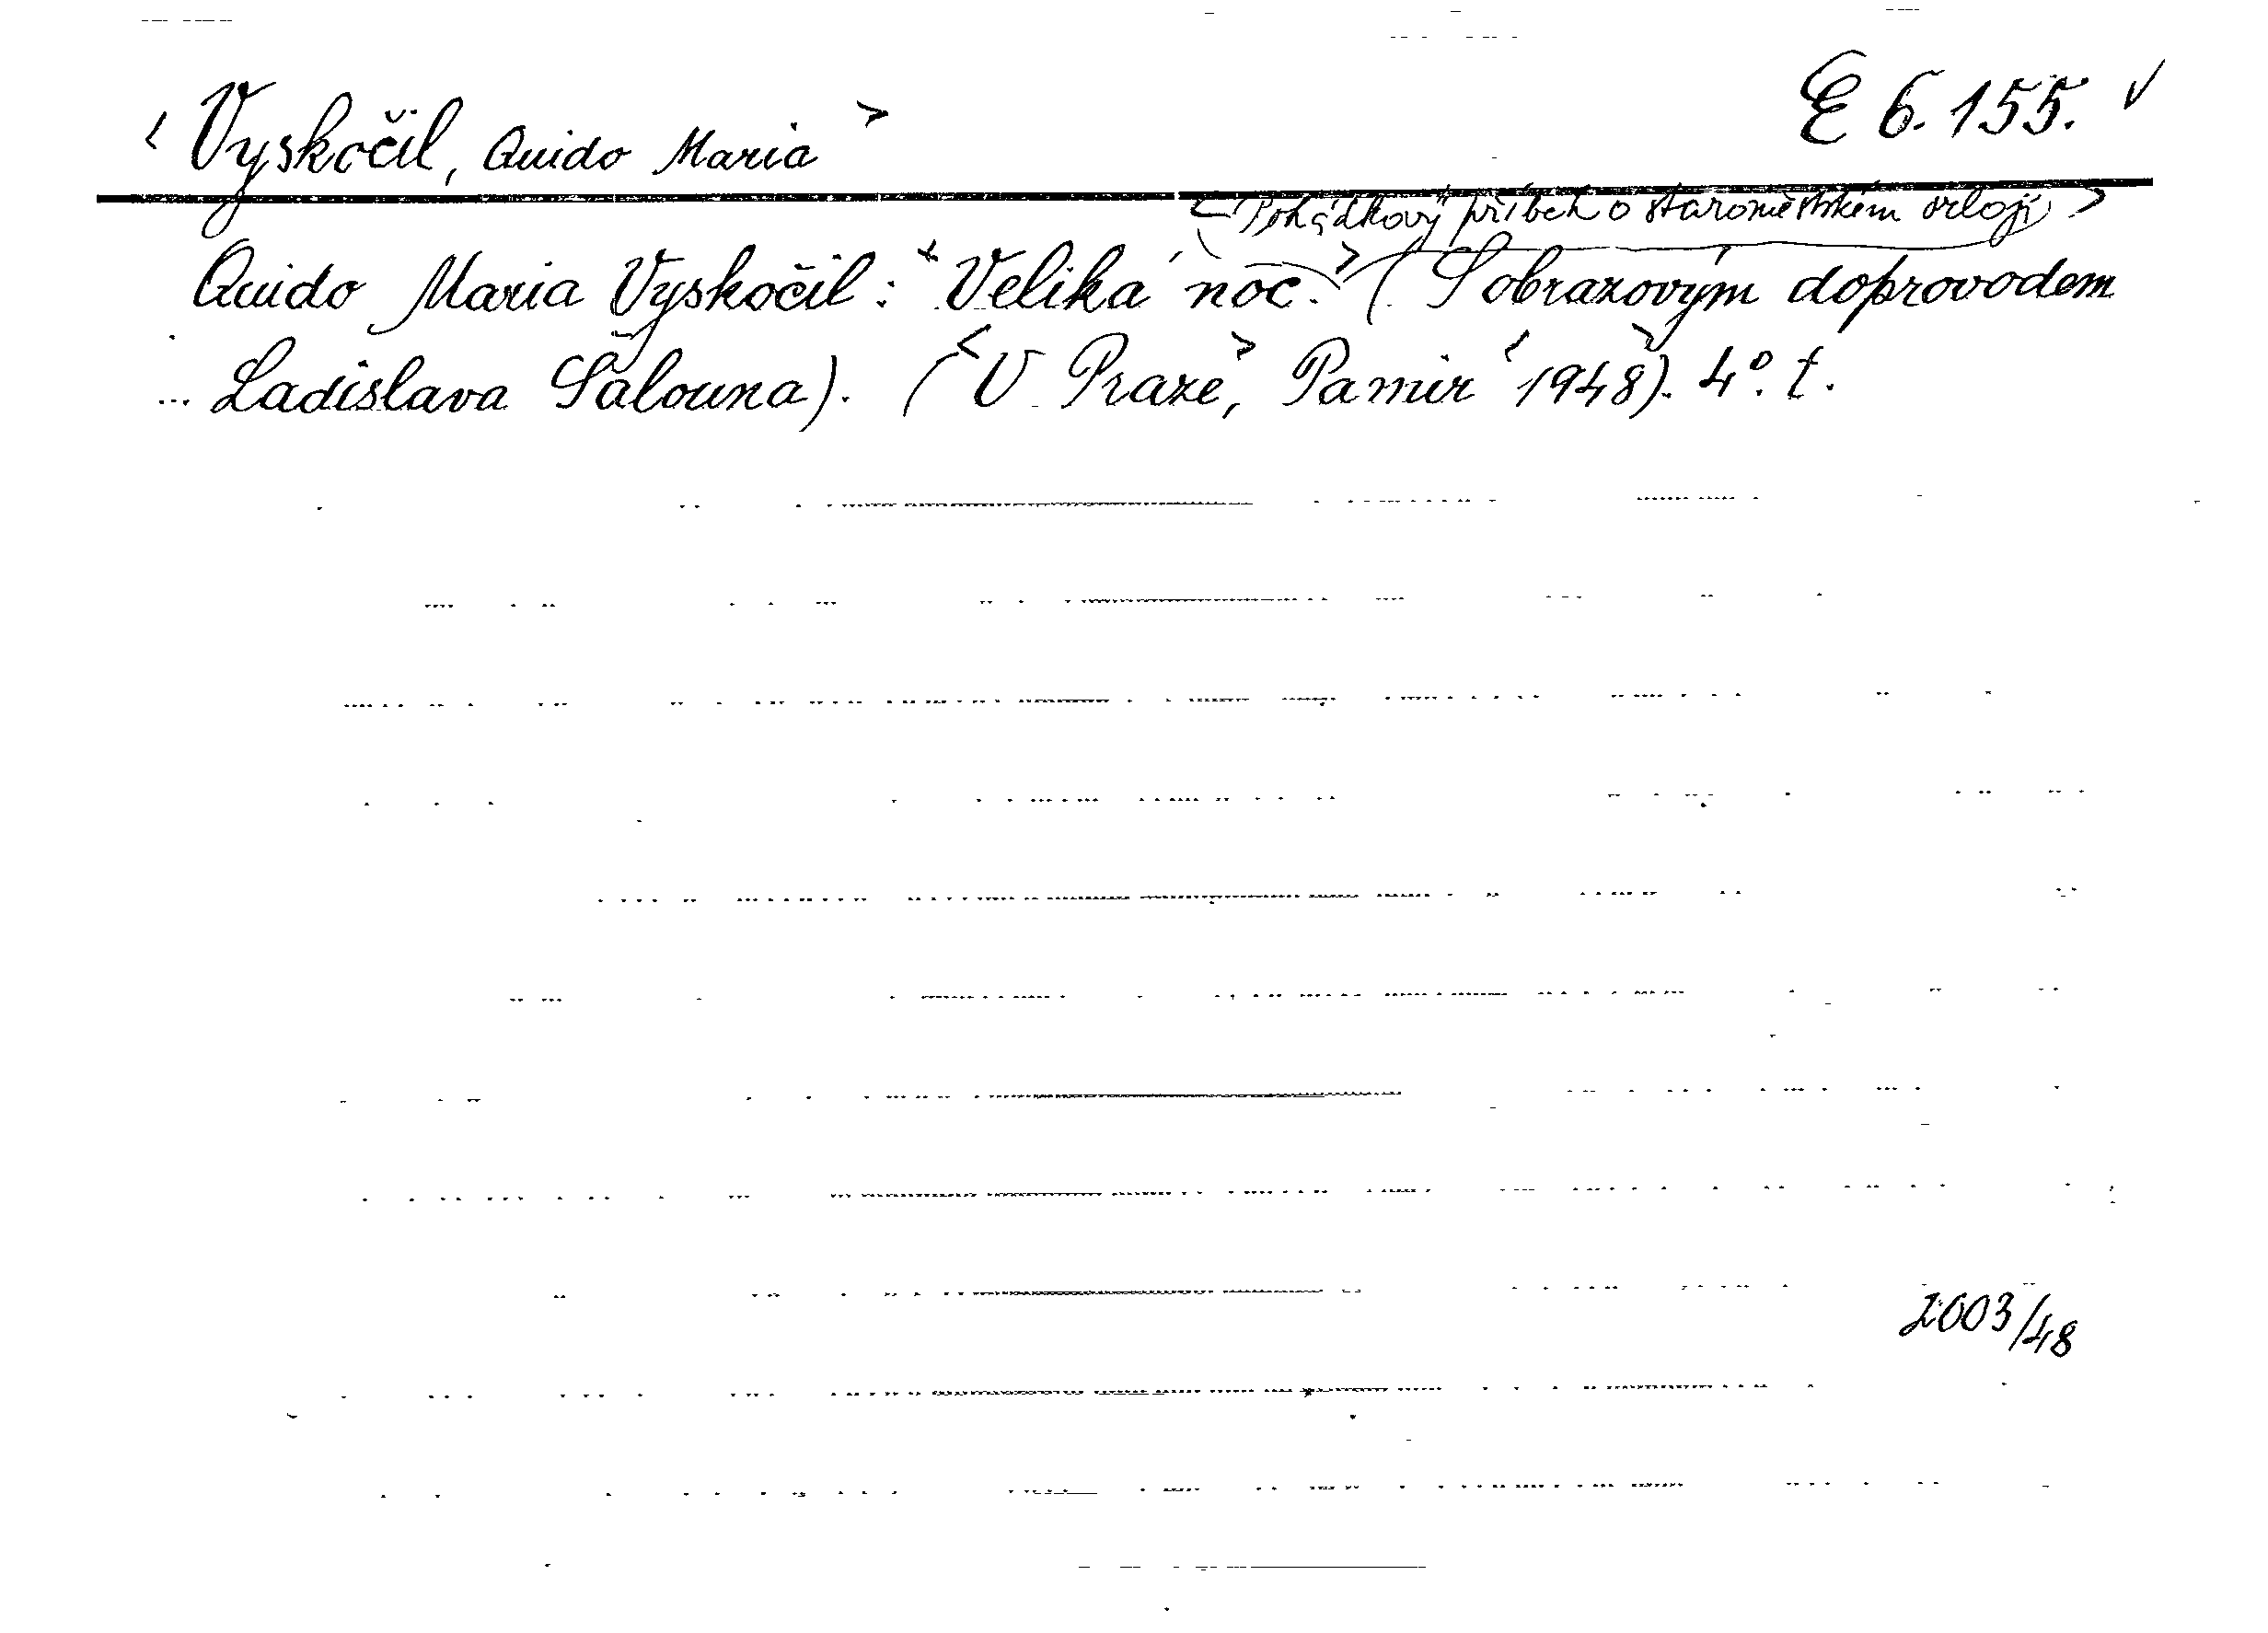 E 6.155. ✓
<Vyskočil, Quido Maria>
<Pohádkový příběh o staroměstském orloji>
Quido Maria Vyskočil: "Veliká noc.> (S obrazovým doprovodem
Ladislava Šalouna). (<V Praze>, Pamir <1948>). 4°. t.
2003/48